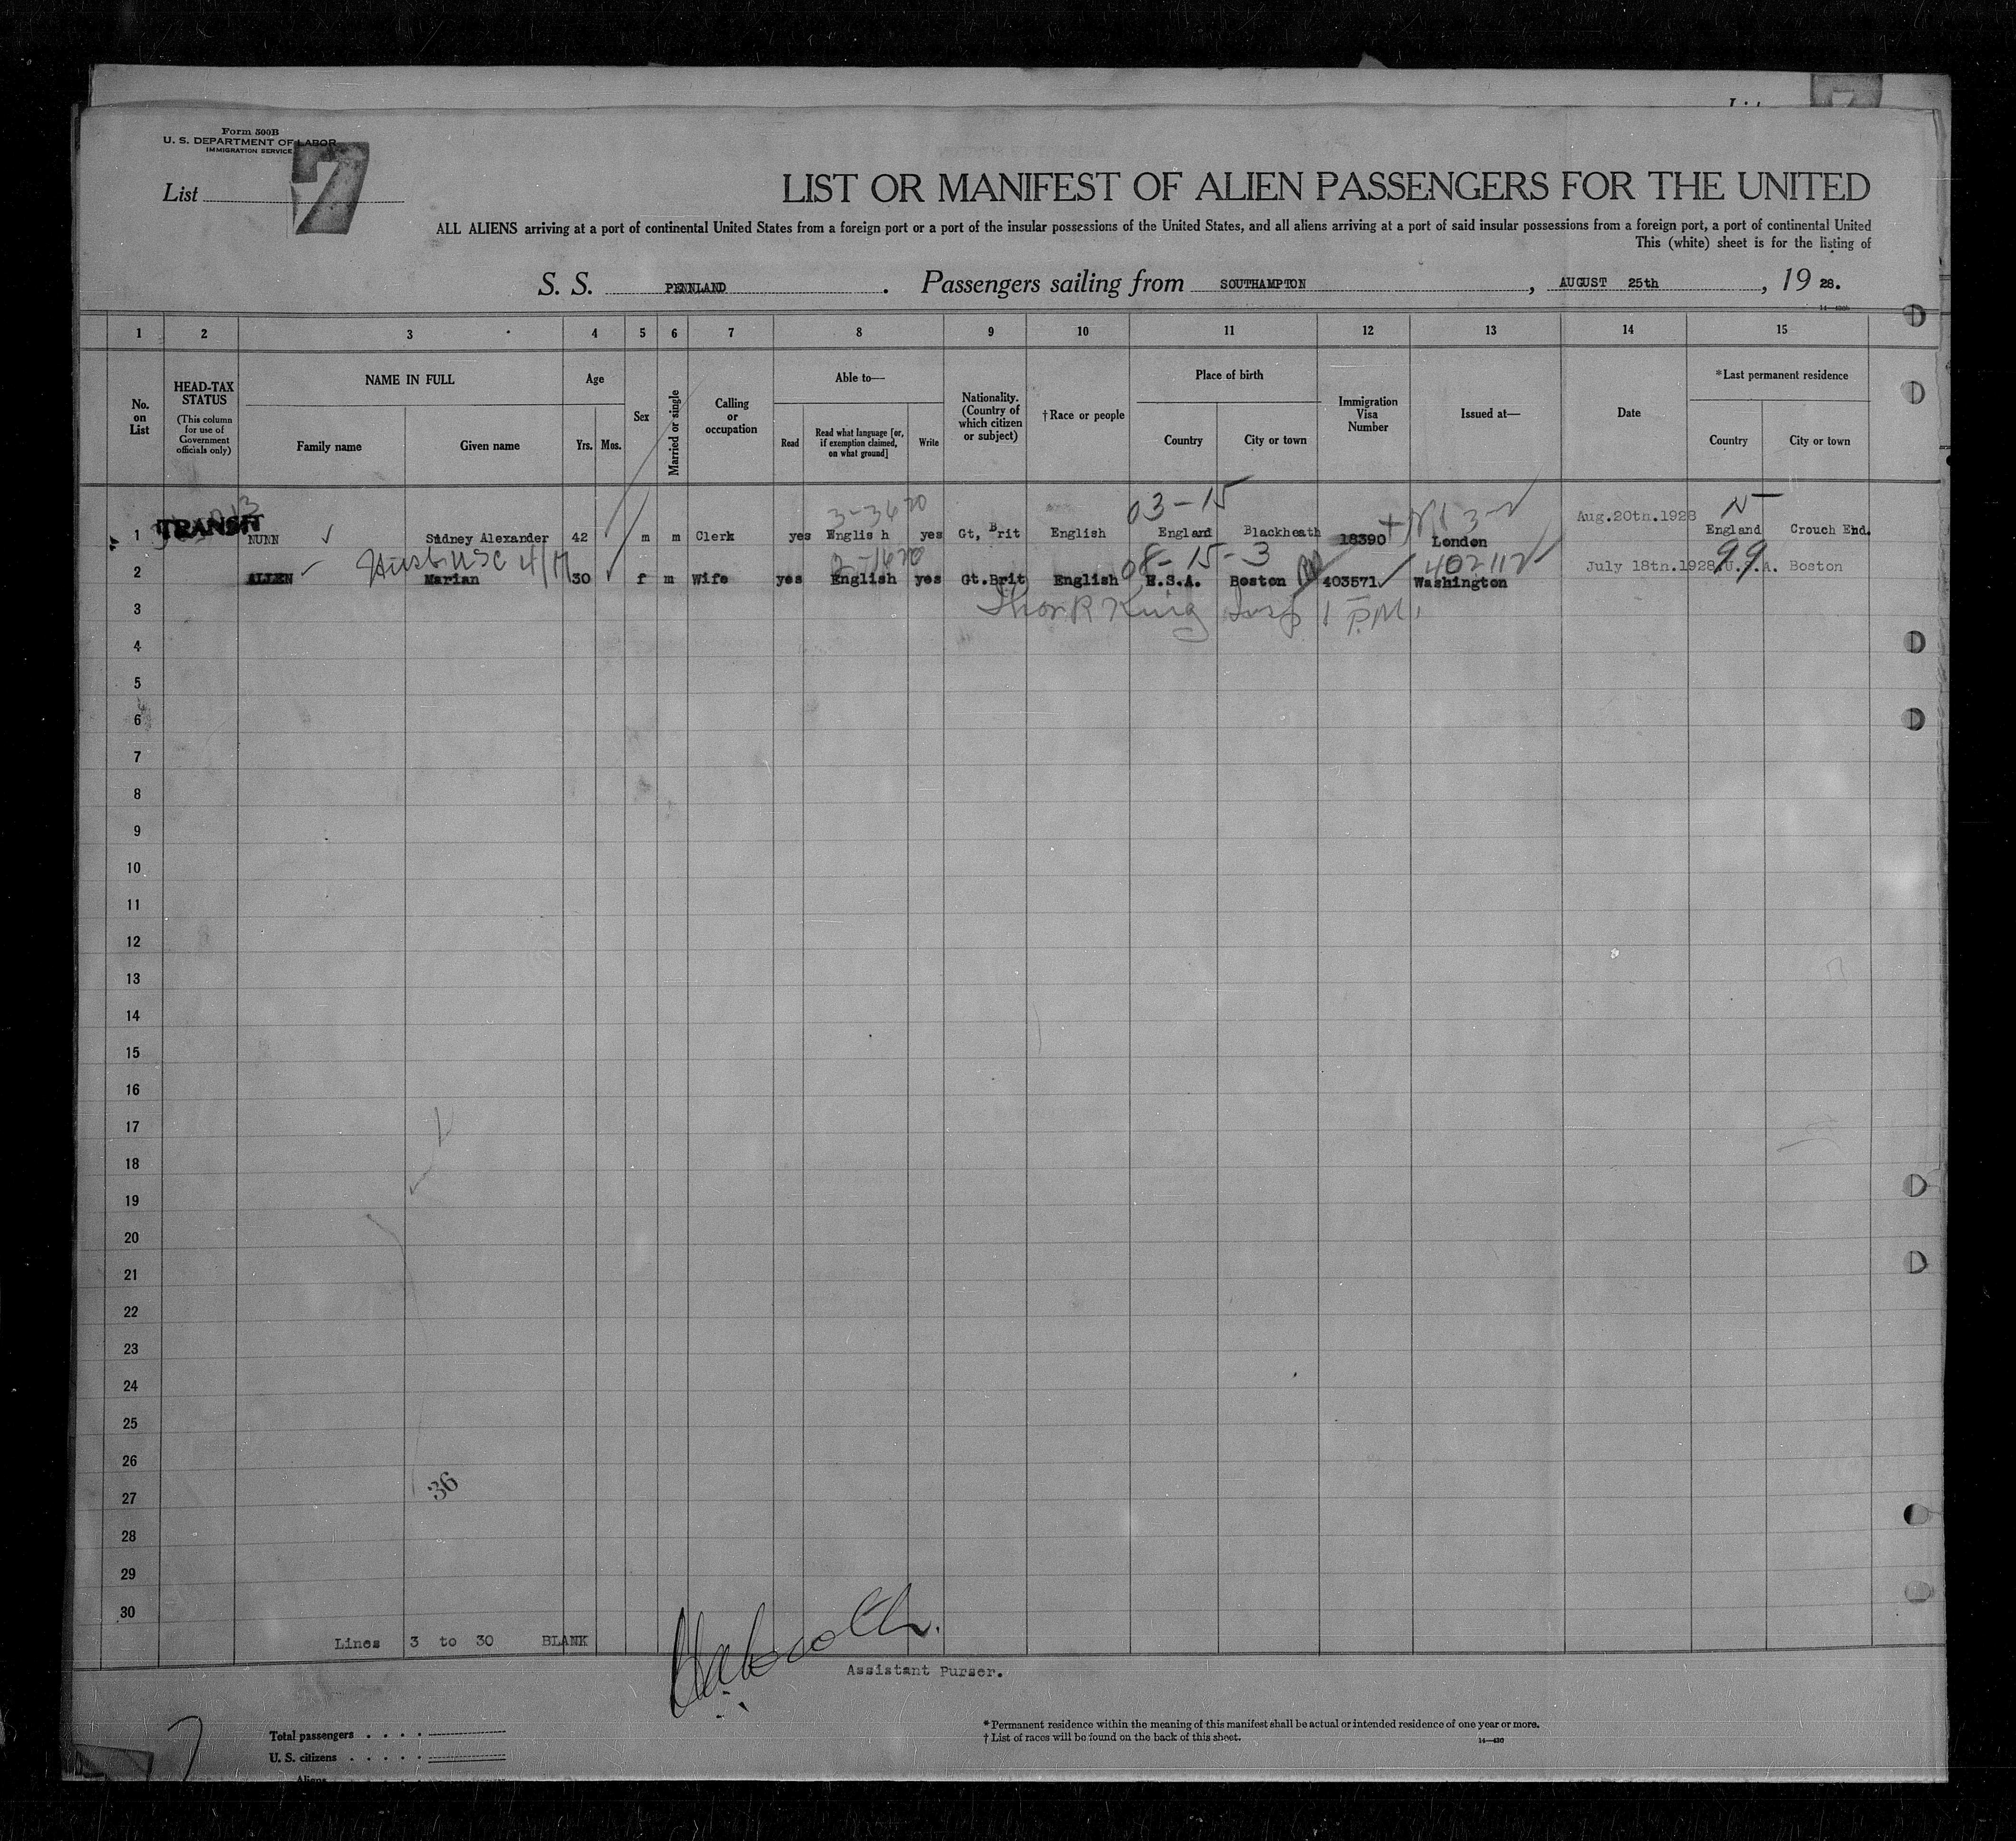 Form 500B
U. S. DEPARTMENT OF LABOR
IMMIGRATION SERVICE
List 7
LIST OR MANIFEST OF ALIEN PASSENGERS FOR THE UNITED
ALL ALIENS arriving at a port of continental United States from a foreign port or a port of the insular possessions of the United States, and all aliens arriving at a port of said insular possessions from a foreign port, a port of continental United
This (white) sheet is for the listing of
S. S. PENNLAND . Passengers sailing from SOUTHAMPTON , AUGUST 25th , 19 28.
1 2 3 4 5 6 7 8 9 10 11 12 13 14 15
No. on List
HEAD-TAX STATUS (This column for use of Government officials only)
NAME IN FULL Family name Given name
Age Yrs. Mos.
Sex
Married or single
Calling or occupation
Able to— Read Read what language [or, if exemption claimed, on what ground] Write
Nationality. (Country of which citizen or subject)
†Race or people
Place of birth Country City or town
Immigration Visa Number
Issued at—
Date
*Last permanent residence Country City or town
03-15
1 TRANSIT NUNN Sidney Alexander 42 m m Clerk yes Englis h yes Gt, Brit English England Blackheath 18390 London Aug.20tn.1928 England Crouch End.
08-15-3 402112 99
2 ALLEN Marian 30 f m Wife yes English yes Gt.Brit English U.S.A. Boston 403571 Washington July 18tn.1928 U.S.A. Boston
3 King Insp 1 P.M.
4
5
6
7
8
9
10
11
12
13
14
15
16
17
18
19
20
21
22
23
24
25
26
36
27
28
29
30
Lines 3 to 30 BLANK
Assistant Purser.
Total passengers
U. S. citizens
Aliens
*Permanent residence within the meaning of this manifest shall be actual or intended residence of one year or more.
† List of races will be found on the back of this sheet.